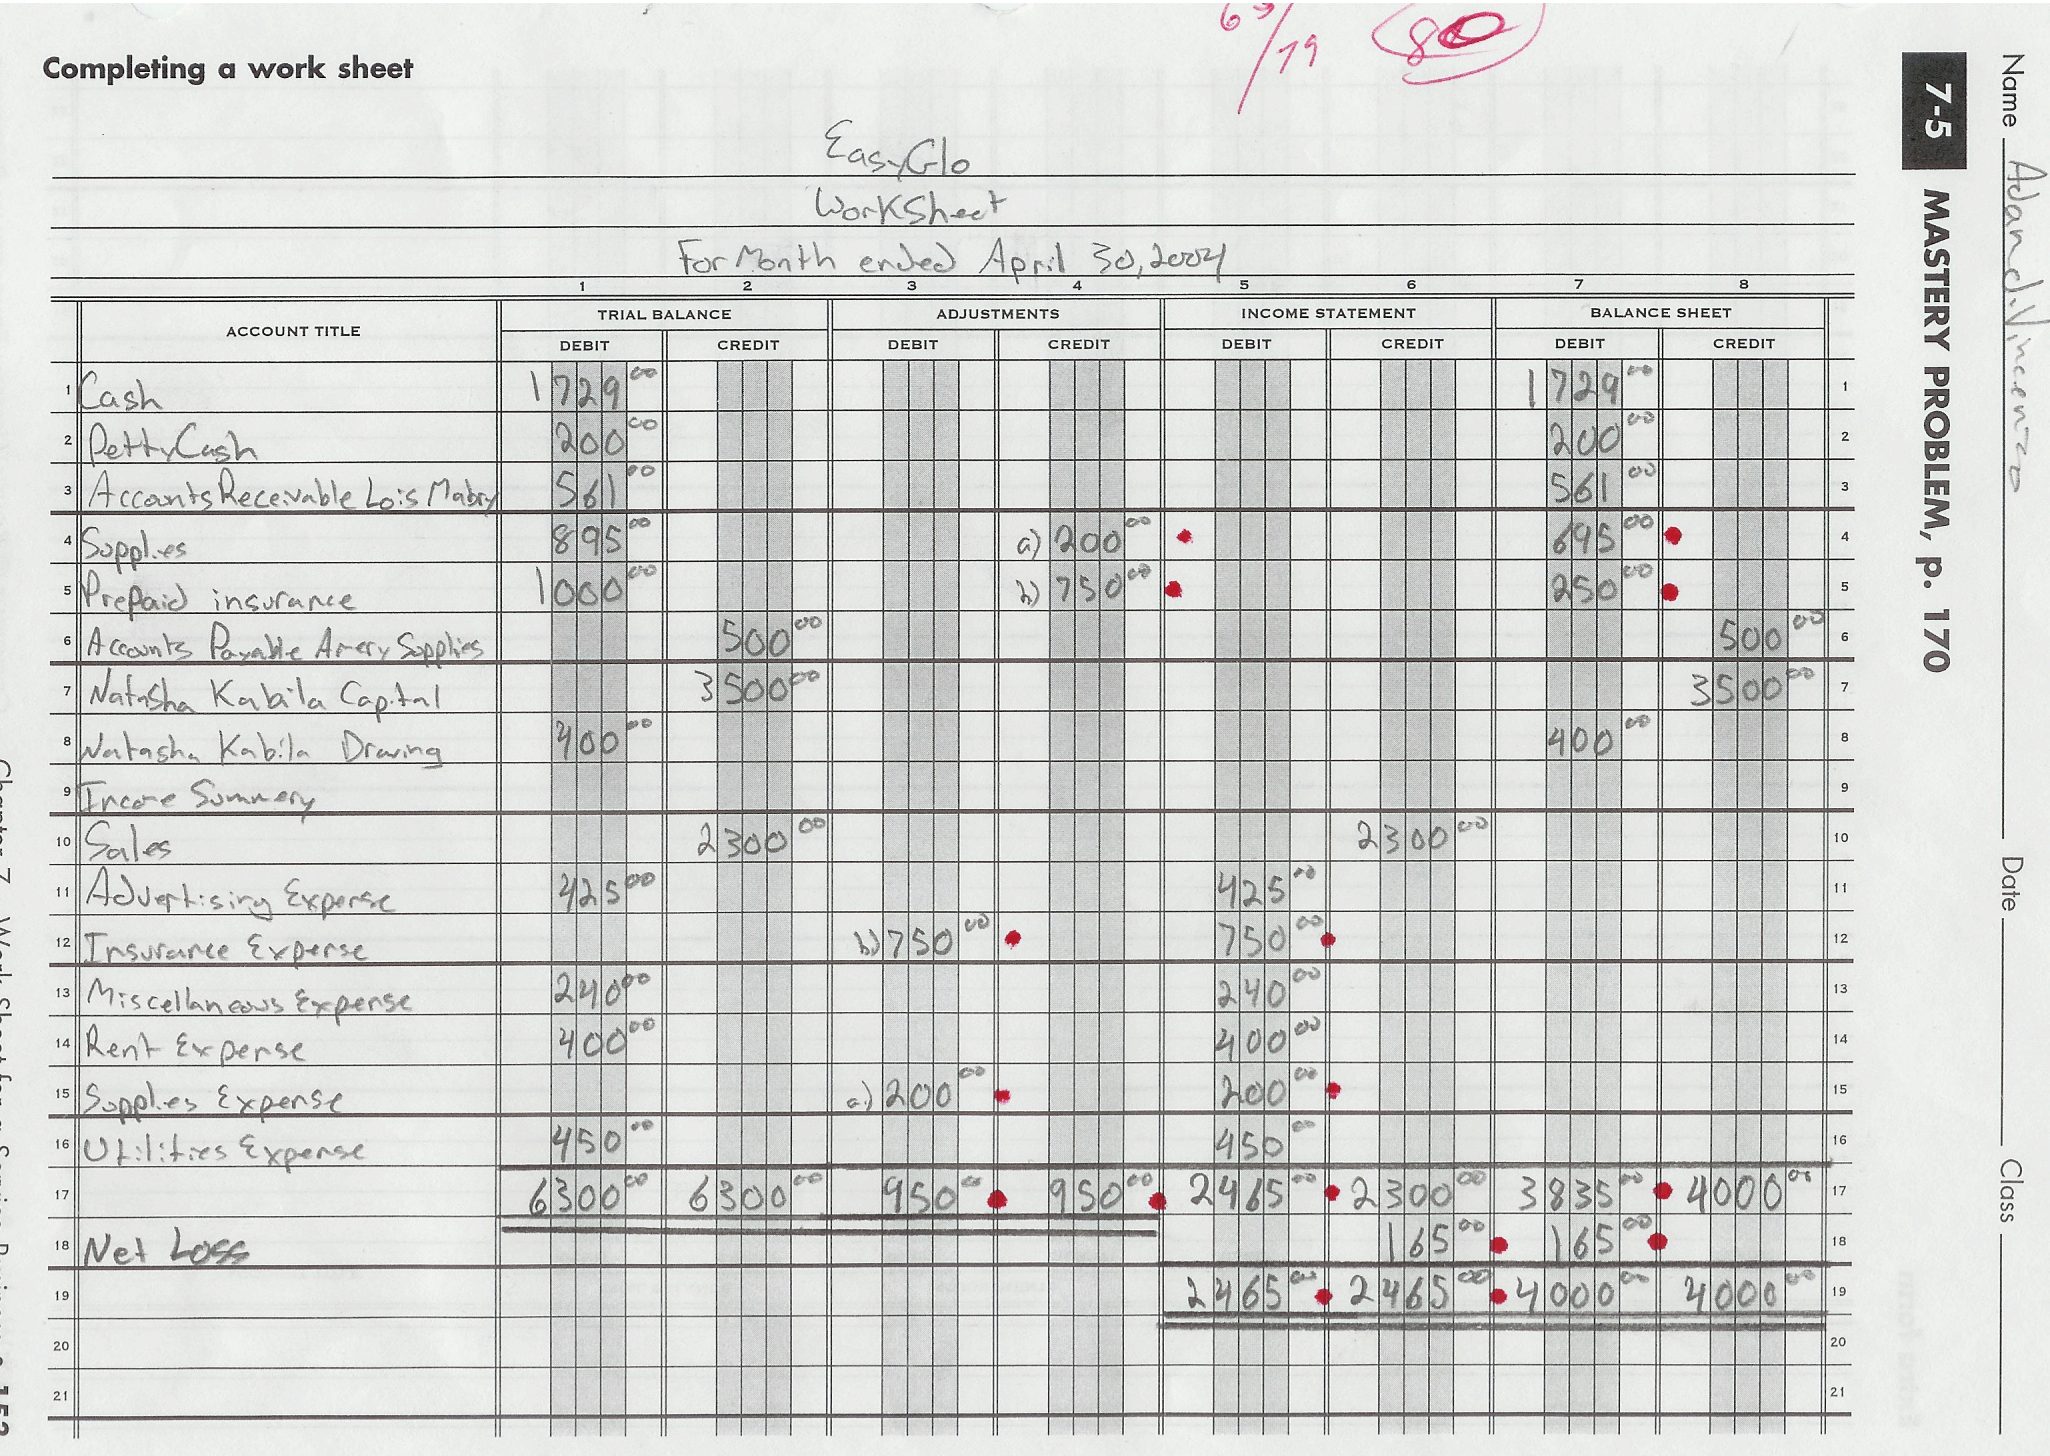 63/79 80
Completing a work sheet
EasyGlo
WorkSheet
For Month ended April 30, 2004
1 2 3 4 5 6 7 8
ACCOUNT TITLE TRIAL BALANCE ADJUSTMENTS INCOME STATEMENT BALANCE SHEET
DEBIT CREDIT DEBIT CREDIT DEBIT CREDIT DEBIT CREDIT
1 Cash 1729 00 1729 00 1
2 Petty Cash 200 00 200 00 2
3 Accounts Receivable Lois Mabry 561 00 561 00 3
4 Supplies 895 00 a) 200 00 695 00 4
5 Prepaid insurance 1000 00 b) 750 00 250 00 5
6 Accounts Payable Amery Supplies 500 00 500 00 6
7 Natasha Kabila Capital 3500 00 3500 00 7
8 Natasha Kabila Drawing 400 00 400 00 8
9 Income Summery 9
10 Sales 2300 00 2300 00 10
11 Advertising Expense 425 00 425 00 11
12 Insurance Expense b) 750 00 750 00 12
13 Miscellaneous Expense 240 00 240 00 13
14 Rent Expense 400 00 400 00 14
15 Supplies Expense a) 200 00 200 00 15
16 Utilities Expense 450 00 450 00 16
17 6300 00 6300 00 950 00 950 00 2465 00 2300 00 3835 00 4000 00 17
18 Net Loss 165 00 165 00 18
19 2465 00 2465 00 4000 00 4000 00 19
20 20
21 21
Name Adam diVincenzo Date Class
7-5 MASTERY PROBLEM, p. 170